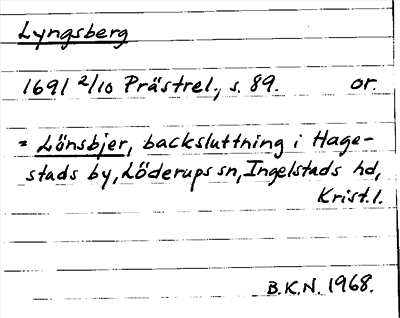 Lyngsberg
1691 2/10 Prästrel., s. 89. or.
= Lönsbjer, backsluttning i Hage-
stads by, Löderups sn, Ingelstads hd,
Krist. l.
B.K.N. 1968.